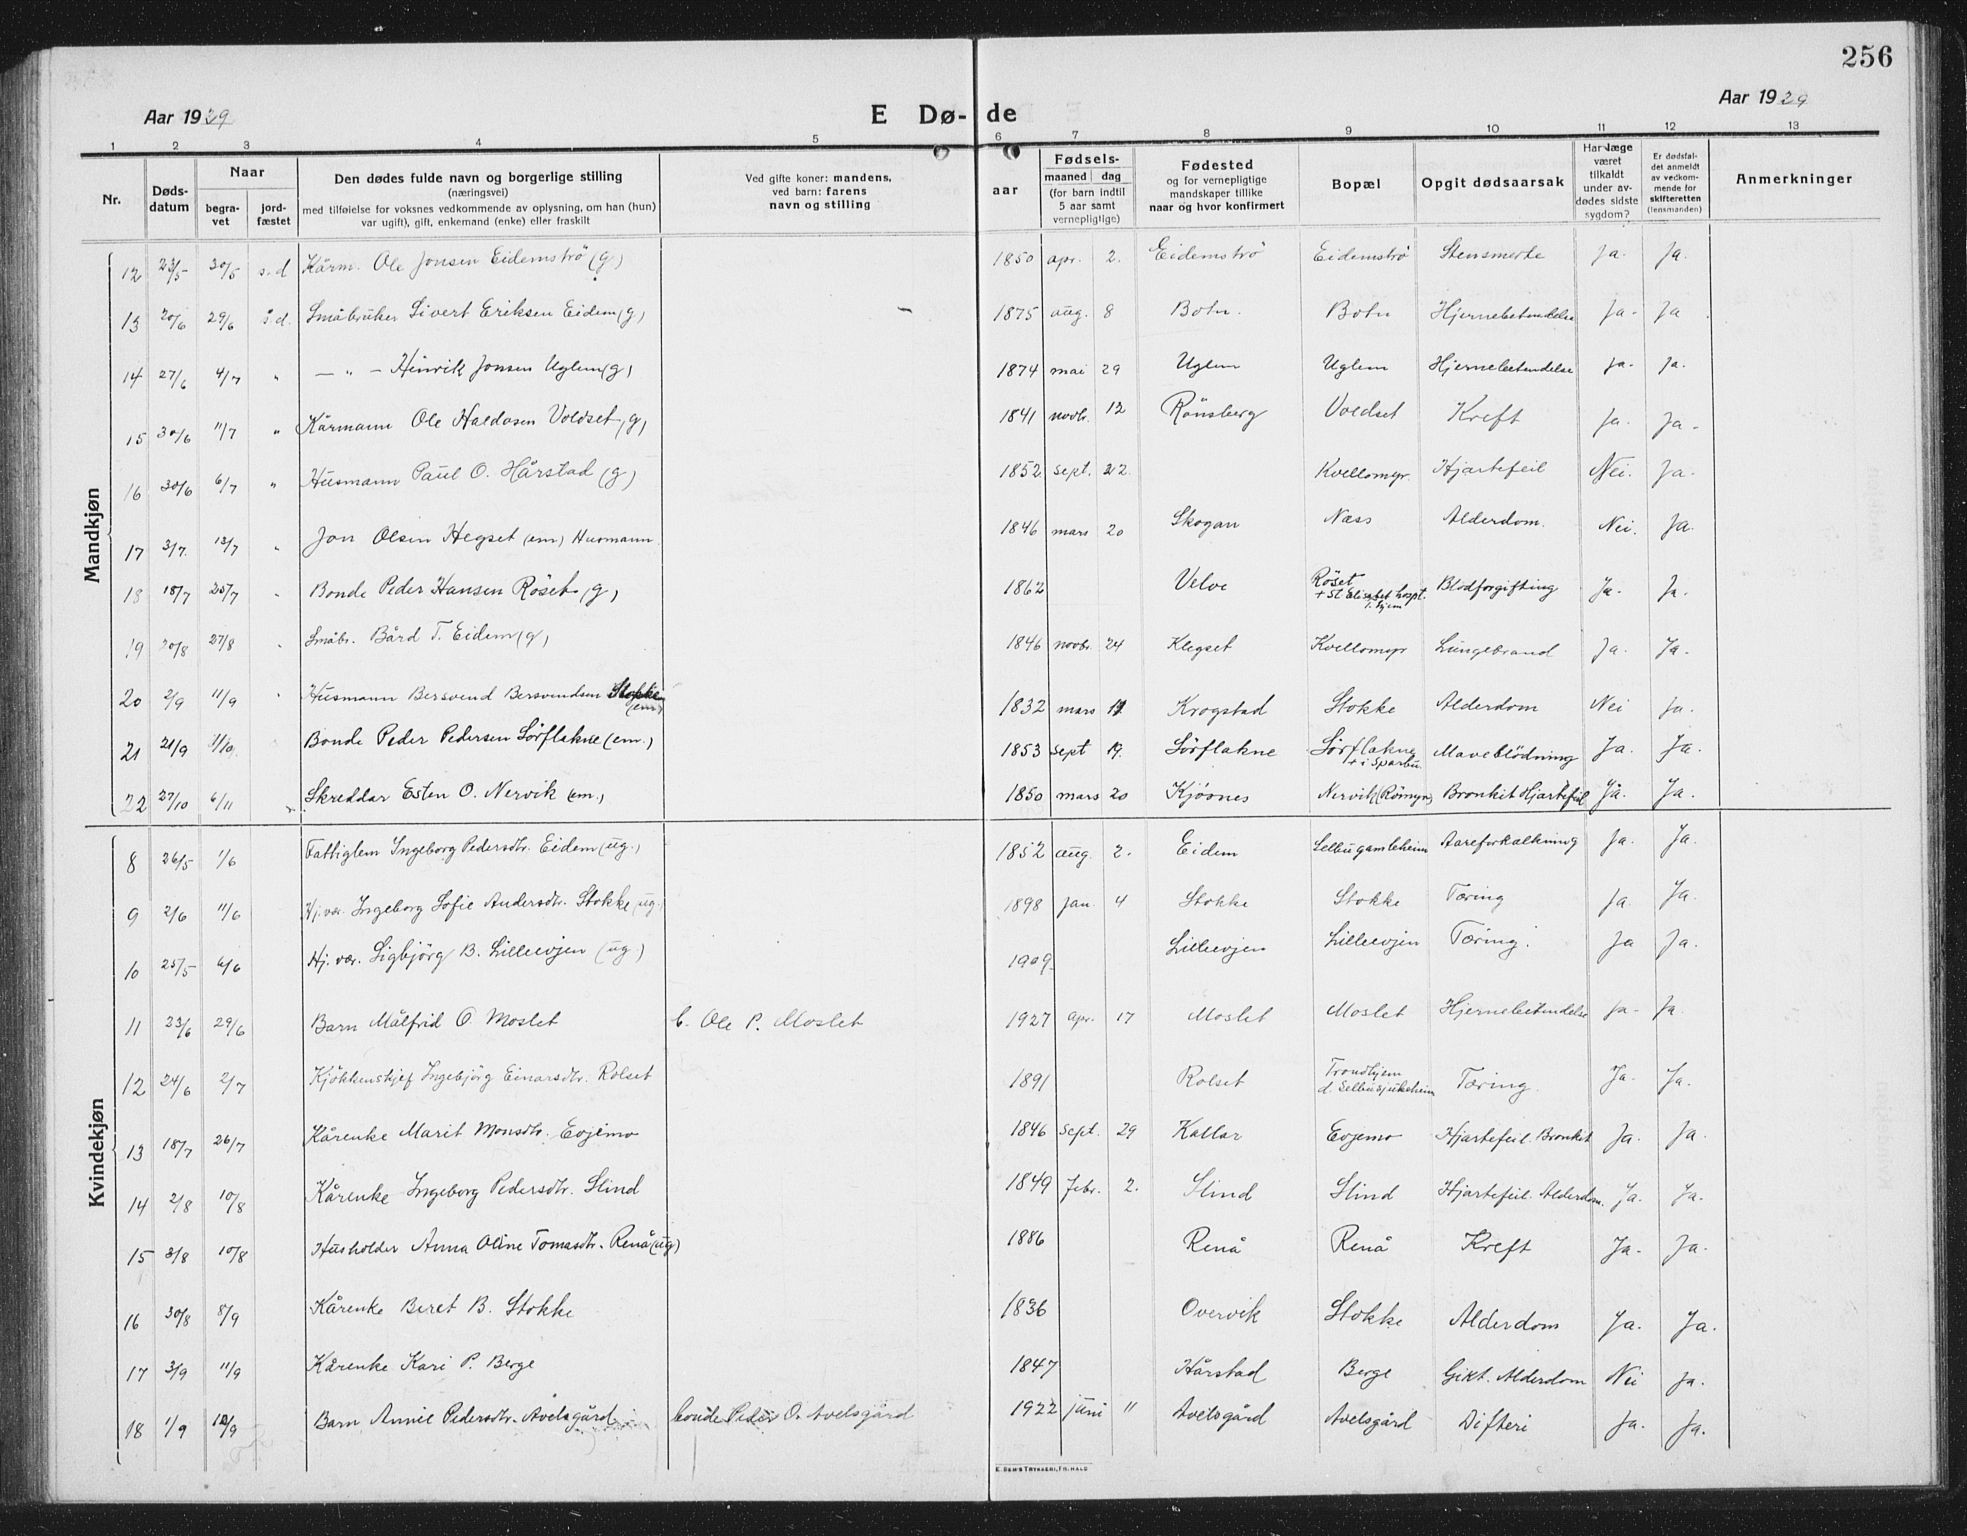 256
Aar 1929 E Dø- de Aar 1929
1 2 3 4 5 6 7 8 9 10 11 12 13
Nr. Døds-datum Naar begra-vet jord-fæstet Den dødes fulde navn og borgerlige stilling (næringsvei) med tilføielse for voksnes vedkommende av oplysning, om han (hun) var ugift), gift, enkemand (enke) eller fraskilt Ved gifte koner: mandens, ved barn: farens navn og stilling aar Fødsels- maaned dag (for barn indtil 5 aar samt vernepligtige) Fødested og for vernepligtige mandskaper tillike naar og hvor konfirmert Bopæl Opgit dødsaarsak Har læge været tilkaldt under av-dødes sidste sygdom? Er dødsfal-det anmeldt av vedkom-mende for skifteretten (lensmanden) Anmerkninger
Mandkjøn
12 23/5 30/5 s.d Kårm. Ole Jonsen Eidemströ (g) 1850 apr. 2. Eidemströ Eidemströ Stensmerte Ja. Ja.
13 20/6 29/6 s.d. Småbruker Sivert Eriksen Eidem (g) 1875 aug. 8 Botn. Botn Hjernebetendelse Ja. Ja
14 27/6 4/7 " — " — Hinrik Jonsen Uglem (g) 1874 mai 29 Uglem Uglem Hjernebetendelse Ja. Ja.
15 30/6 11/7 " Kårmann Ole Haldosen Voldset (g) 1841 novbr. 12 Rönsberg Voldset Kreft Ja. Ja.
16 30/6 6/7 " Husmann Paul O. Hårstad (g) 1852 sept. 22. Kvellomyr. Hjartefeil Nei. Ja.
17 3/7. 13/7 " Jon Olsen Hegset (em) Husmann 1846 mars 20 Skogan Næss Alderdom. Nei. Ja.
18 18/7 25/7 " Bonde Peder Hansen Röset (g) 1862 Velve Röset + St Elisabet hospt. T.hjem Blodforgifting Ja. Ja.
19 20/8 27/8 " Småbr. Bård T. Eidem (g) 1846 novbr. 24 Klegset Kvellomyr Lungebrand Ja. Ja.
20 2/9 11/9 " Husmann Bersvend Bersvendsen Stokke (em) 1832 mars 17 Krogstad Stokke Alderdom Nei Ja.
21 21/9 1/10. Bonde Peder Pedersen Sörflakne (em.) 1853 sept 19. Sörflakne Sörflakne + i Sparbu. Maveblödning Ja. Ja.
22 27/10 6/11 Skreddar Esten O. Nervik (em.) 1850 mars 20 Kjösnes Nervik (Römyr) Bronkit Hjartefeil Ja. Ja.
Kvindekjøn
8 26/5 1/6 Fattiglem Ingeborg Pedersdtr. Eidem (ug.) 1852 aug. 2. Eidem Selbu gamleheim Aareforkalkning Ja. Ja.
9 2/6 11/6 Hj. vær. Ingeborg Sofie Andersdtr. Stokke (ug.) 1898 Jan. 4 Stokke Stokke Tæring Ja. Ja.
10 25/5 6/6 Hj. vær. Sigbjörg B. Lilleevjen (ug.) 1909 Lilleevjen Lilleevjen Tæring. Ja Ja.
11 23/6 29/6 Barn Målfrid O. Moslet b. Ole P. Moslet 1927 apr. 17 Moslet Moslet Hjernebetendelse Ja. Ja.
12 24/6 2/7 Kjökkenshjef Ingebjörg Einarsdtr. Rolset 1891 Rolset Trondhjem d. Selbu sjukeheim Tæring. Ja. Ja.
13 18/7 26/7 Kårenke Marit Monsdtr. Evjemo 1846 sept. 29 Kallar Evjemo Hjartefeil. Bronkit Ja. Ja.
14 2/8 10/8 Kårenke Ingeborg Pedersdtr. Slind 1849 febr. 2. Slind Slind Hjartefeil. Alderdom. Ja. Ja.
15 3/8 10/8 Husholder Anna Oline Tomasdtr. Renå (ug) 1886 Renå Renå Kreft Ja. Ja.
16 30/8 8/9 Kårenke Beret B. Stokke 1836 Overvik Stokke Alderdom Ja. Ja.
17 3/9 11/9 Kårenke Kari P. Berge 1847 Hårstad Berge Gikt. Alderdom Nei Ja.
18 1/9 12/9 Barn Annie Pedersdtr. Avelsgård bonde Peder O. Avelsgård 1922 juni 11 Avelsgård Avelsgård Difteri Ja. Ja.
E. SEM'S TRYKKERI, FR.HALD